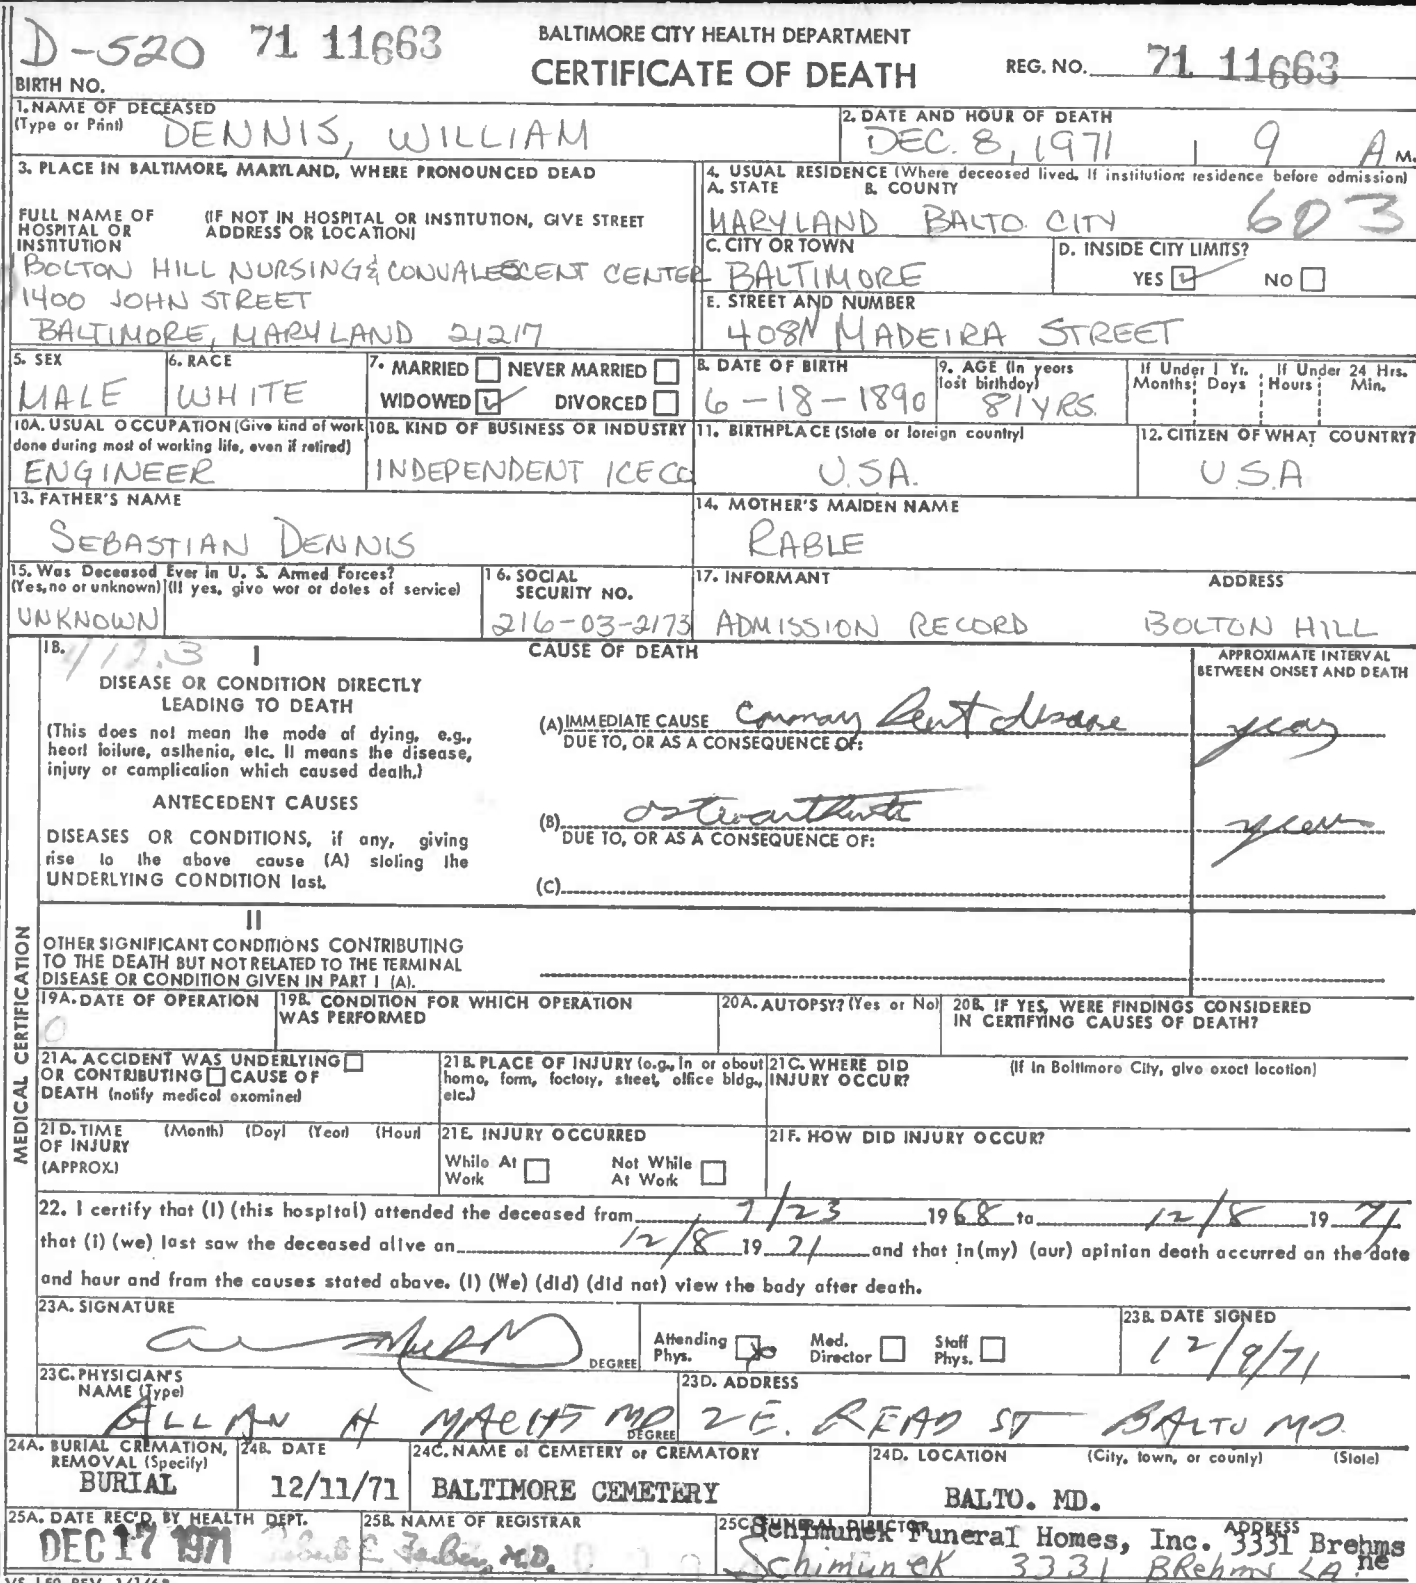 D-520 71 11663 BALTIMORE CITY HEALTH DEPARTMENT
CERTIFICATE OF DEATH REG. NO. 71 11663
BIRTH NO.
1. NAME OF DECEASED
(Type or Print) DENNIS, WILLIAM
2. DATE AND HOUR OF DEATH
DEC. 8, 1971 9 A M.
3. PLACE IN BALTIMORE, MARYLAND, WHERE PRONOUNCED DEAD
FULL NAME OF HOSPITAL OR INSTITUTION
(IF NOT IN HOSPITAL OR INSTITUTION, GIVE STREET ADDRESS OR LOCATION)
BOLTON HILL NURSING & CONVALESCENT CENTER
1400 JOHN STREET
BALTIMORE, MARYLAND 21217
4. USUAL RESIDENCE (Where deceased lived. If institution: residence before admission)
A. STATE B. COUNTY
MARYLAND BALTO. CITY 603
C. CITY OR TOWN
BALTIMORE
D. INSIDE CITY LIMITS?
YES NO
E. STREET AND NUMBER
408N MADEIRA STREET
5. SEX
MALE
6. RACE
WHITE
7. MARRIED NEVER MARRIED
WIDOWED DIVORCED
8. DATE OF BIRTH
6-18-1890
9. AGE (In years last birthday)
81 YRS.
If Under 1 Yr. If Under 24 Hrs.
Months Days Hours Min.
10A. USUAL OCCUPATION (Give kind of work done during most of working life, even if retired)
ENGINEER
10B. KIND OF BUSINESS OR INDUSTRY
INDEPENDENT ICE CO
11. BIRTHPLACE (State or foreign country)
U.S.A.
12. CITIZEN OF WHAT COUNTRY?
U.S.A
13. FATHER'S NAME
SEBASTIAN DENNIS
14. MOTHER'S MAIDEN NAME
RABLE
15. Was Deceased Ever in U. S. Armed Forces?
(Yes, no or unknown) (If yes, give war or dates of service)
UNKNOWN
16. SOCIAL SECURITY NO.
216-03-2173
17. INFORMANT ADDRESS
ADMISSION RECORD BOLTON HILL
18. 412.3 I CAUSE OF DEATH
APPROXIMATE INTERVAL
BETWEEN ONSET AND DEATH
DISEASE OR CONDITION DIRECTLY
LEADING TO DEATH
(This does not mean the mode of dying, e.g.,
heart failure, asthenia, etc. It means the disease,
injury or complication which caused death.)
(A) IMMEDIATE CAUSE Coronary Heart disease years
DUE TO, OR AS A CONSEQUENCE OF:
ANTECEDENT CAUSES
DISEASES OR CONDITIONS, if any, giving
rise to the above cause (A) stating the
UNDERLYING CONDITION last.
(B) osteoarthritis years
DUE TO, OR AS A CONSEQUENCE OF:
(C)
II
OTHER SIGNIFICANT CONDITIONS CONTRIBUTING
TO THE DEATH BUT NOT RELATED TO THE TERMINAL
DISEASE OR CONDITION GIVEN IN PART I (A).
MEDICAL CERTIFICATION
19A. DATE OF OPERATION
0
19B. CONDITION FOR WHICH OPERATION
WAS PERFORMED
20A. AUTOPSY? (Yes or No)
20B. IF YES, WERE FINDINGS CONSIDERED
IN CERTIFYING CAUSES OF DEATH?
21A. ACCIDENT WAS UNDERLYING
OR CONTRIBUTING CAUSE OF
DEATH (notify medical examiner)
21B. PLACE OF INJURY (e.g., in or about
home, farm, factory, street, office bldg.,
etc.)
21C. WHERE DID
INJURY OCCUR?
(If in Baltimore City, give exact location)
21D. TIME (Month) (Day) (Year) (Hour)
OF INJURY
(APPROX.)
21E. INJURY OCCURRED
While At Work Not While At Work
21F. HOW DID INJURY OCCUR?
22. I certify that (I) (this hospital) attended the deceased from 7/23 1968 to 12/8 1971
that (I) (we) last saw the deceased alive on 12/8 1971 and that in (my) (our) opinion death occurred on the date
and hour and from the causes stated above. (I) (We) (did) (did not) view the body after death.
23A. SIGNATURE
DEGREE
Attending Phys. Med. Director Staff Phys.
23B. DATE SIGNED
12/9/71
23C. PHYSICIAN'S
NAME (Type)
ALLAN H MACHT MD
DEGREE
23D. ADDRESS
2 E. READ ST BALTO MD.
24A. BURIAL CREMATION,
REMOVAL (Specify)
BURIAL
24B. DATE
12/11/71
24C. NAME of CEMETERY or CREMATORY
BALTIMORE CEMETERY
24D. LOCATION (City, town, or county) (State)
BALTO. MD.
25A. DATE REC'D BY HEALTH DEPT.
DEC 17 1971
25B. NAME OF REGISTRAR
Robert E. Farber, M.D.
25C. FUNERAL DIRECTOR ADDRESS
Schimunek Funeral Homes, Inc. 3331 Brehms
ne
Schimunek 3331 BRehms LA
VS 150 REV. 1/1/68